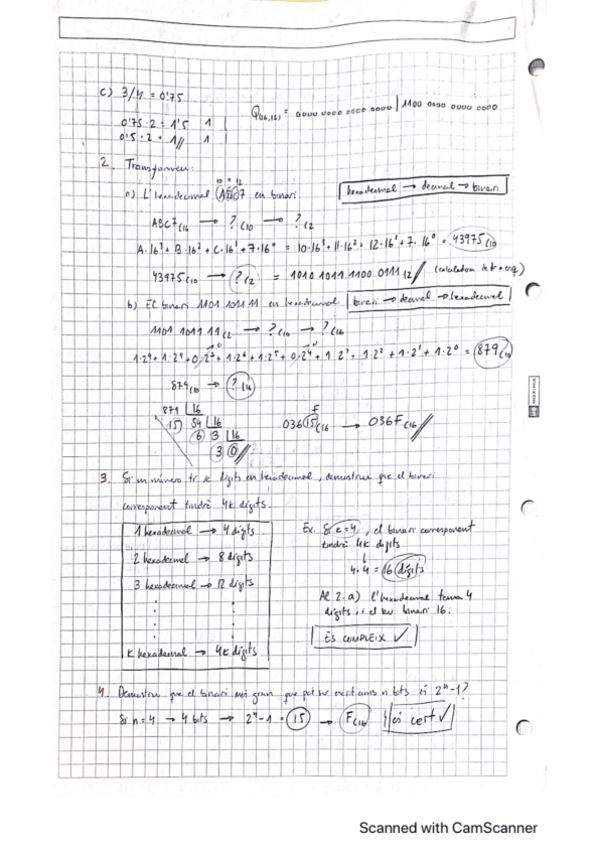 c) 3/4 = 0'75
0'75 · 2 = 1'5 1
0'5 · 2 = 1// 1
Q(16,16) = 0000 0000 0000 0000 | 1100 0000 0000 0000
2. Transformeu:
10 11 12
a) L'hexadecimal ABC7 en binari
hexadecimal → decimal → binari
ABC7(16 → ?(10 → ?(2
A·16³ + B·16² + C·16¹ + 7·16⁰ = 10·16³ + 11·16² + 12·16¹ + 7·16⁰ = 43975(10
43975(10 → ?(2 = 1010 1011 1100 0111(2
b) El binari 1101 1011 11 en hexadecimal
binari → decimal → hexadecimal
1101 1011 11(2 → ?(10 → ?(16
1·2⁹ + 1·2⁸ + 0·2⁷ + 1·2⁶ + 1·2⁵ + 0·2⁴ + 1·2³ + 1·2² + 1·2¹ + 1·2⁰ = 879(10
879(10 → ?(16
879 16
15 54 16
6 3 16
3 0
F
036 15(16 → 036F(16
3. Si un número té k dígits en hexadecimal, demostreu que el binari
corresponent tindrà 4k dígits.
1 hexadecimal → 4 dígits
2 hexadecimal → 8 dígits
3 hexadecimal → 12 dígits
k hexadecimal → 4k dígits
Ex. Si k=4, el binari corresponent
tindrà 4k dígits
4·4 = 16 dígits
Al 2.a) l'hexadecimal tenia 4
dígits, i el seu binari 16.
ES COMPLEIX ✓
4. Demostreu que el binari més gran que pot ser escrit amb n bits és 2ⁿ-1?
Si n=4 → 4 bits → 2⁴-1 = 15 → F(16 és cert ✓
Scanned with CamScanner